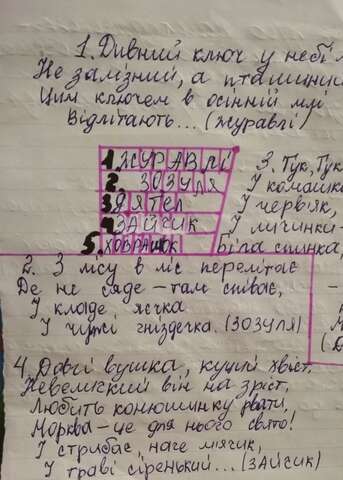 1. Дивний ключ у небі
Не залізний, а пташиний
Цим ключем в осінній
Відлітають... (журавлі)
1. ЖУРАВЛІ
2. ЗОЗУЛЯ
3. ДЯТЕЛ
4. ЗАЙЧИК
5. ХОВРАШОК
3. Тук, Тук
І комашка
І черв'як,
І личинки
Біла спинка,
2. З лісу в ліс перелітає
Де не сяде - там співає,
І кладе, яєчка
І чужі гніздечка. (ЗОЗУЛЯ)
4. Довгі вушка, куций хвіст.
Невеликий він на зріст,
Любить конюшинку рвати,
Морква - це для нього свято!
І стрибає, наче м'ячик,
І траві сіренький... (ЗАЙЧИК)